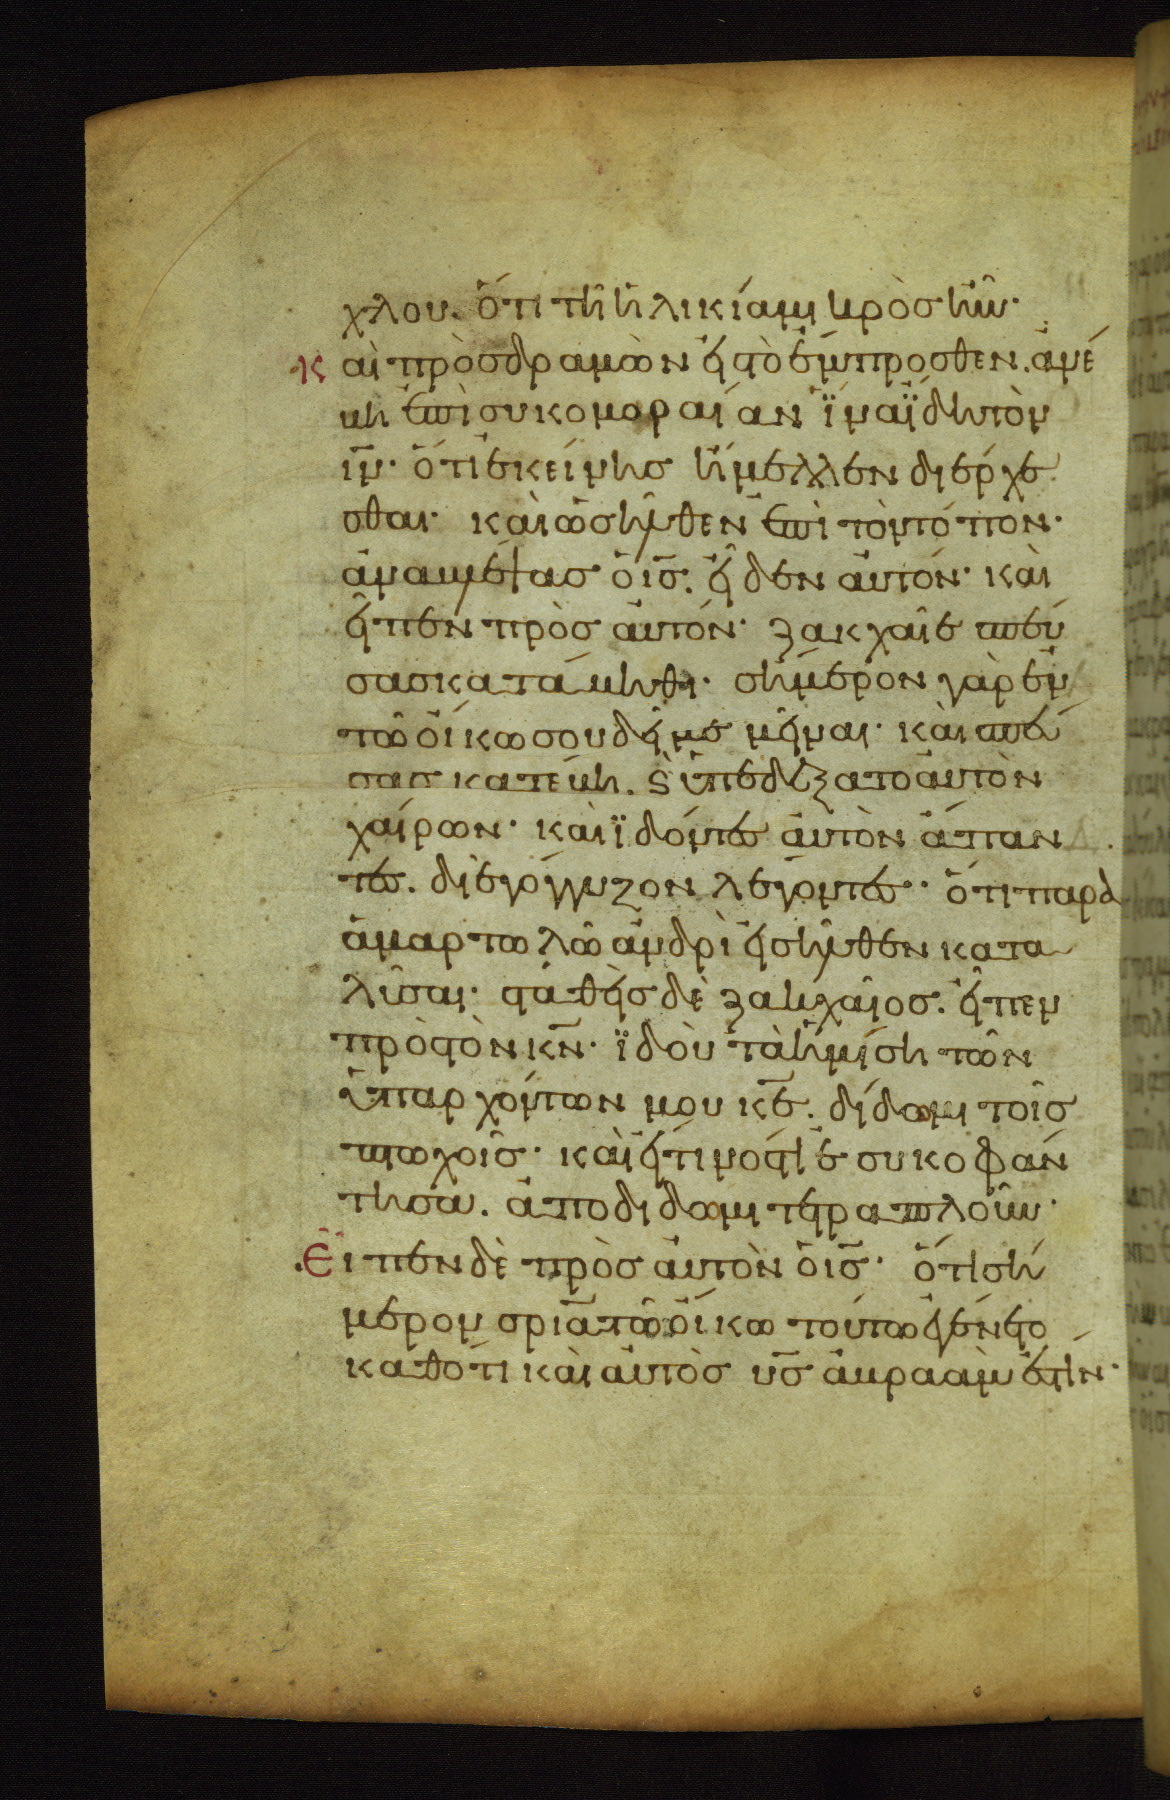 χλου. ὅτι τῆ ἡλικία μικρὸς ἦν·
καὶ προσδραμὼν εἰς τὸ ἔμπροσθεν. ἀνέ
βη ἐπὶ συκομοραίαν ἵνα ἴδη τὸν
ιν̅· ὅτι ἐκείνης ἤμελλεν διέρχε
σθαι· καὶ ὡς ἦλθεν ἐπὶ τὸν τόπον·
ἀναβλέψας ὁ ις̅. εἶδεν αὐτόν· καὶ
εἶπεν πρὸς αὐτόν· ζακχαῖε σπεύ
σας κατάβηθι· σήμερον γὰρ ἐν
τῶ οἴκω σου δεῖ με μεῖναι· καὶ σπεύ
σας κατέβη. ϗ ὑπεδέξατο αὐτὸν
χαίρων· καὶ ϊδόντες αὐτὸν ἅπαν
τες. διεγόγγυζον λέγοντες· ὅτι παρὰ
ἁμαρτωλῶ ἀνδρὶ εἰσῆλθεν κατα
λῦσαι· σταθεὶς δὲ ζακχαῖος. εἶπεν
πρὸς τὸν κν̅· ϊδοὺ τὰ ἡμίση τῶν
ὑπαρχόντων μου κε̅. δίδωμι τοῖς
πτωχοῖς· καὶ εἴ τινός τι ἐσυκοφάν
τησα. ἀποδίδωμι τετραπλοῦν·
Εἶπεν δὲ πρὸς αὐτὸν ὁ ις̅· ὅτι σή
μερον σρια̅ τῶ οἴκω τούτω ἐγένετο
καθότι καὶ αὐτὸς υς̅ ἀβραάμ ἐστιν·